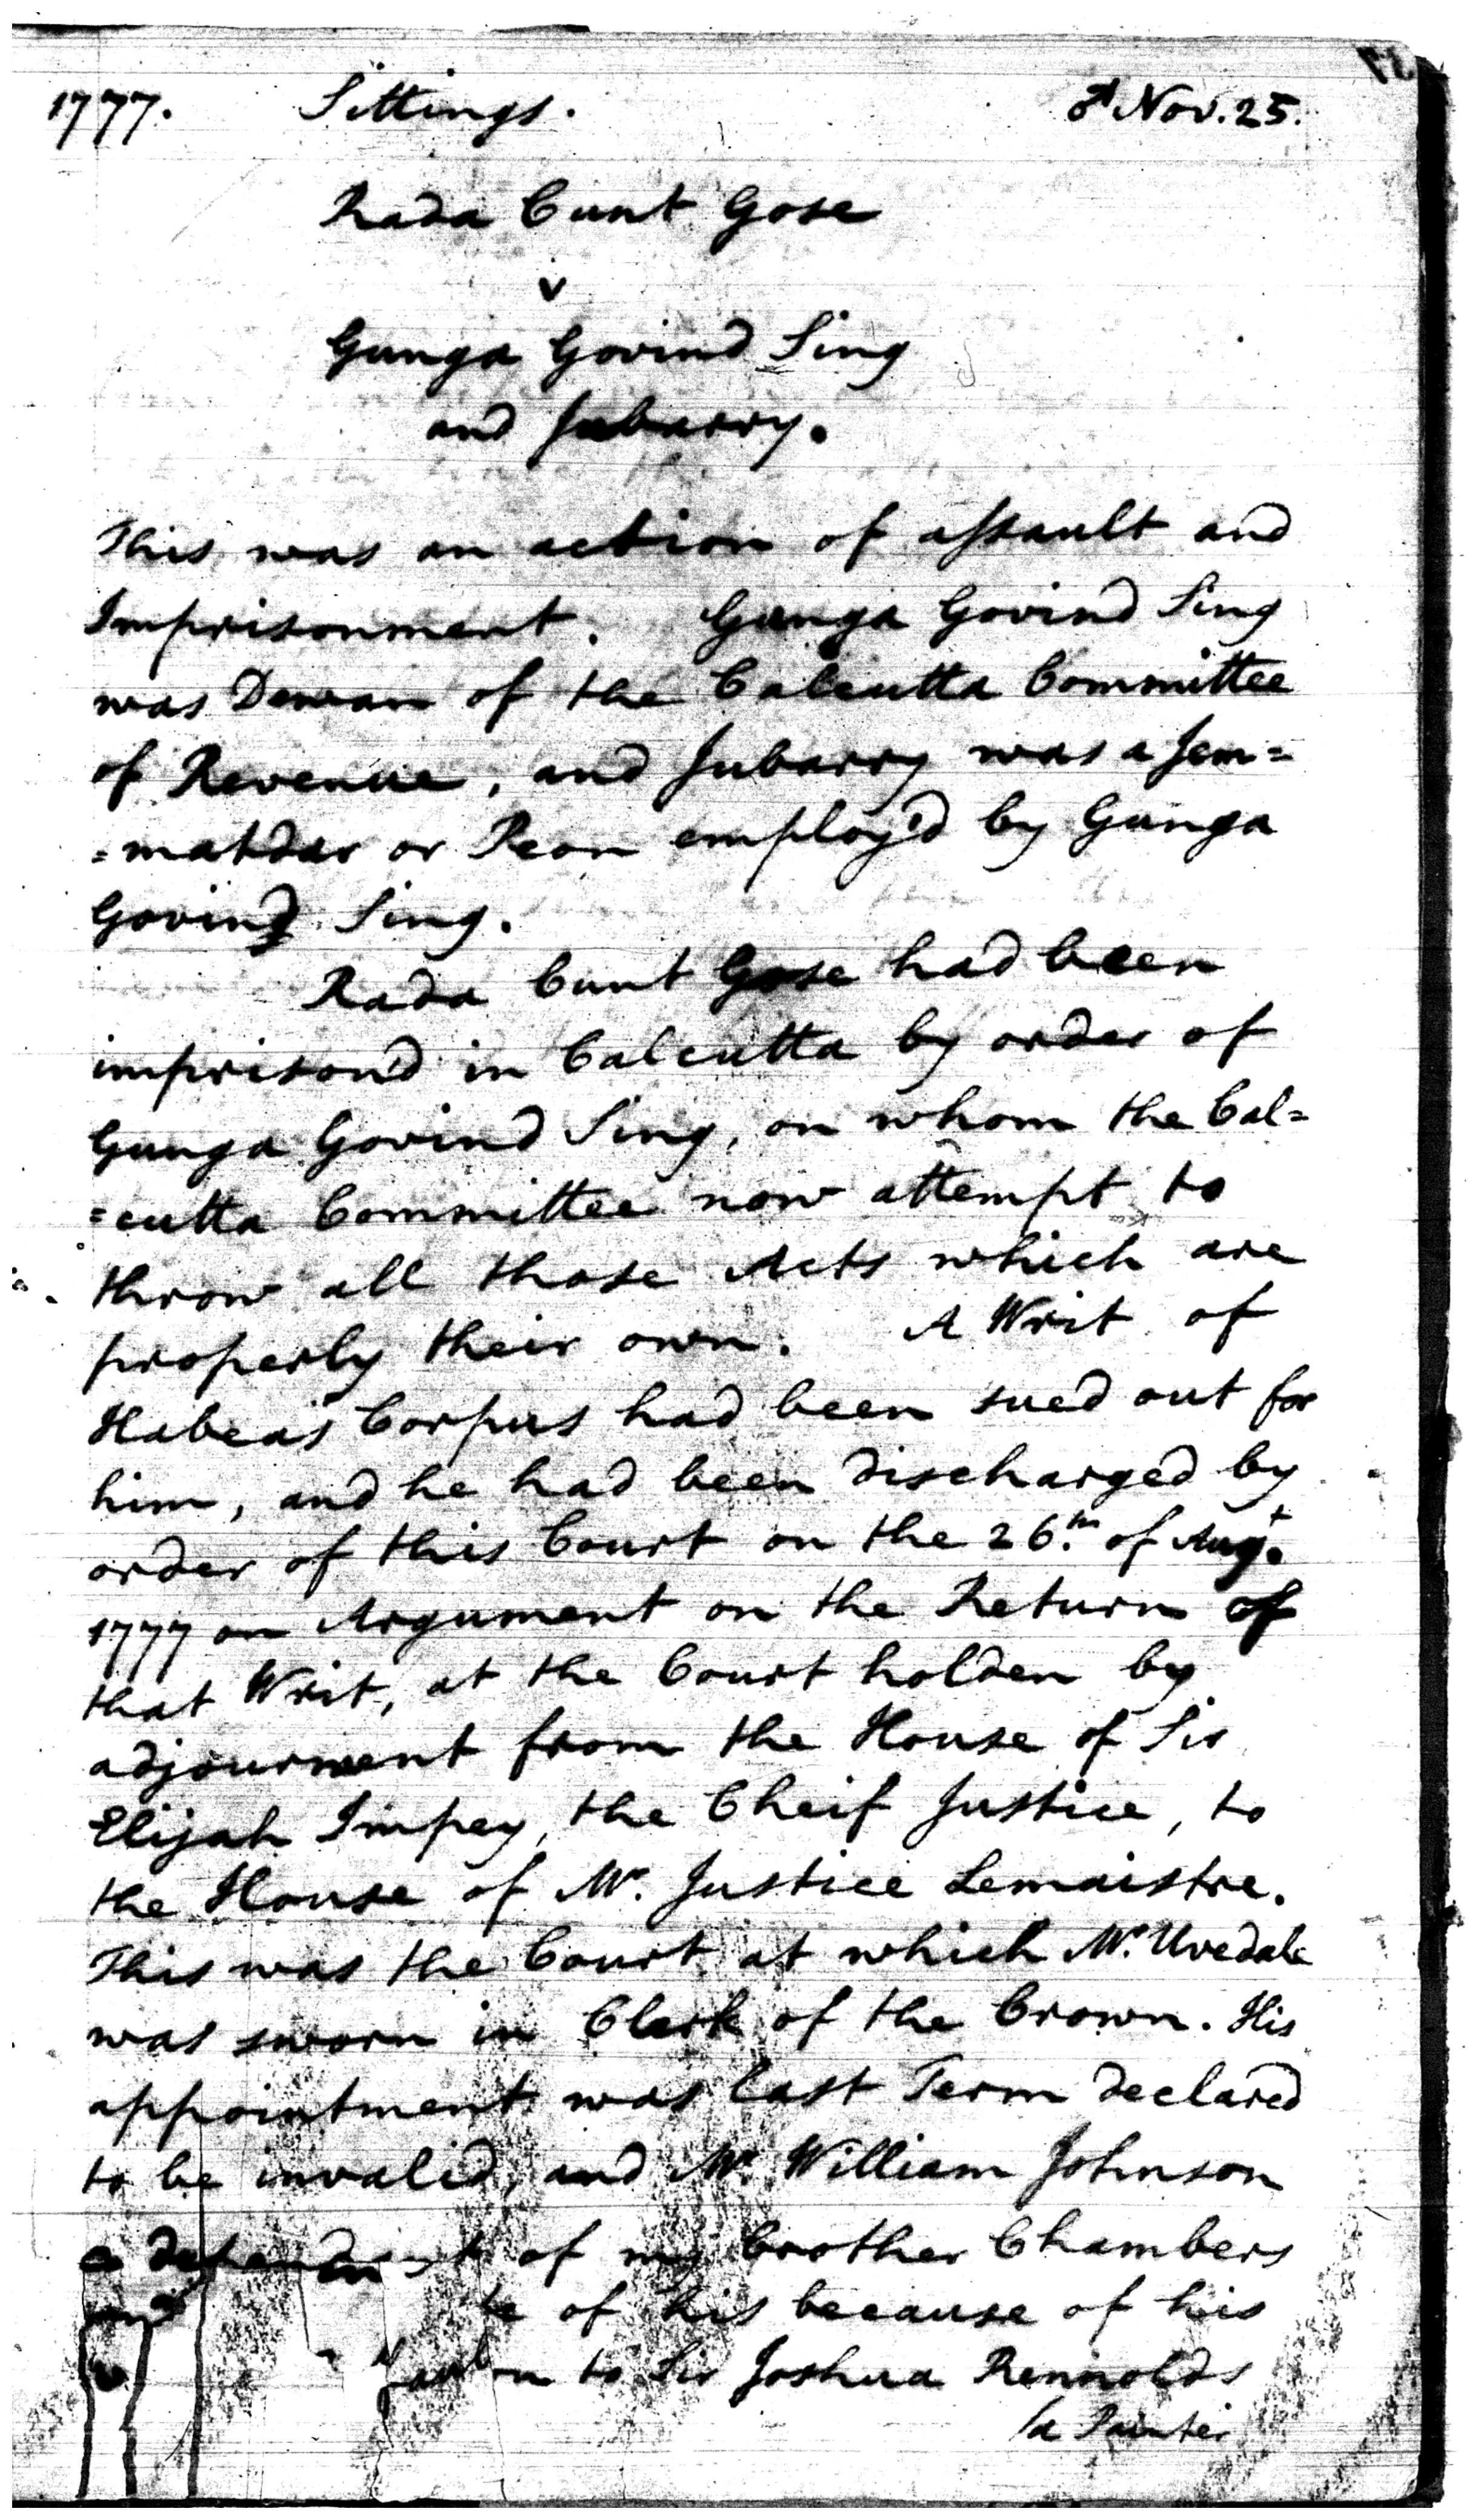 1777. Sittings. ♂ Nov. 25.
Rada Cunt Gose
v
Gunga Govind Sing
and Jubarry.
This was an action of assault and
Imprisonment. Gunga Govind Sing
was Dewan of the Calcutta Committee
of Revenue, and Jubarry was a Jem=
=mahdar or Peon employ'd by Gunga
Govind Sing.
Rada Cunt Gose had been
imprison'd in Calcutta by order of
Gunga Govind Sing, on whom the Cal=
=cutta Committee now attempt to
throw all those Acts which are
properly their own. A Writ of
Habeas Corpus had been sued out for
him, and he had been discharged by
order of this Court on the 26th. of Augt.
1777 on Argument on the Return of
that Writ, at the Court holden by
adjournment from the House of Sir
Elijah Impey, the Cheif Justice, to
the House of Mr. Justice Lemaistre.
This was the Court at which Mr. Uvedale
was sworn in Clerk of the Crown. His
appointment was last Term declared
to be invalid, and Mr. William Johnson
a dependent of my brother Chambers
and of his because of his
to Sir Joshua Rennolds
/a Painter